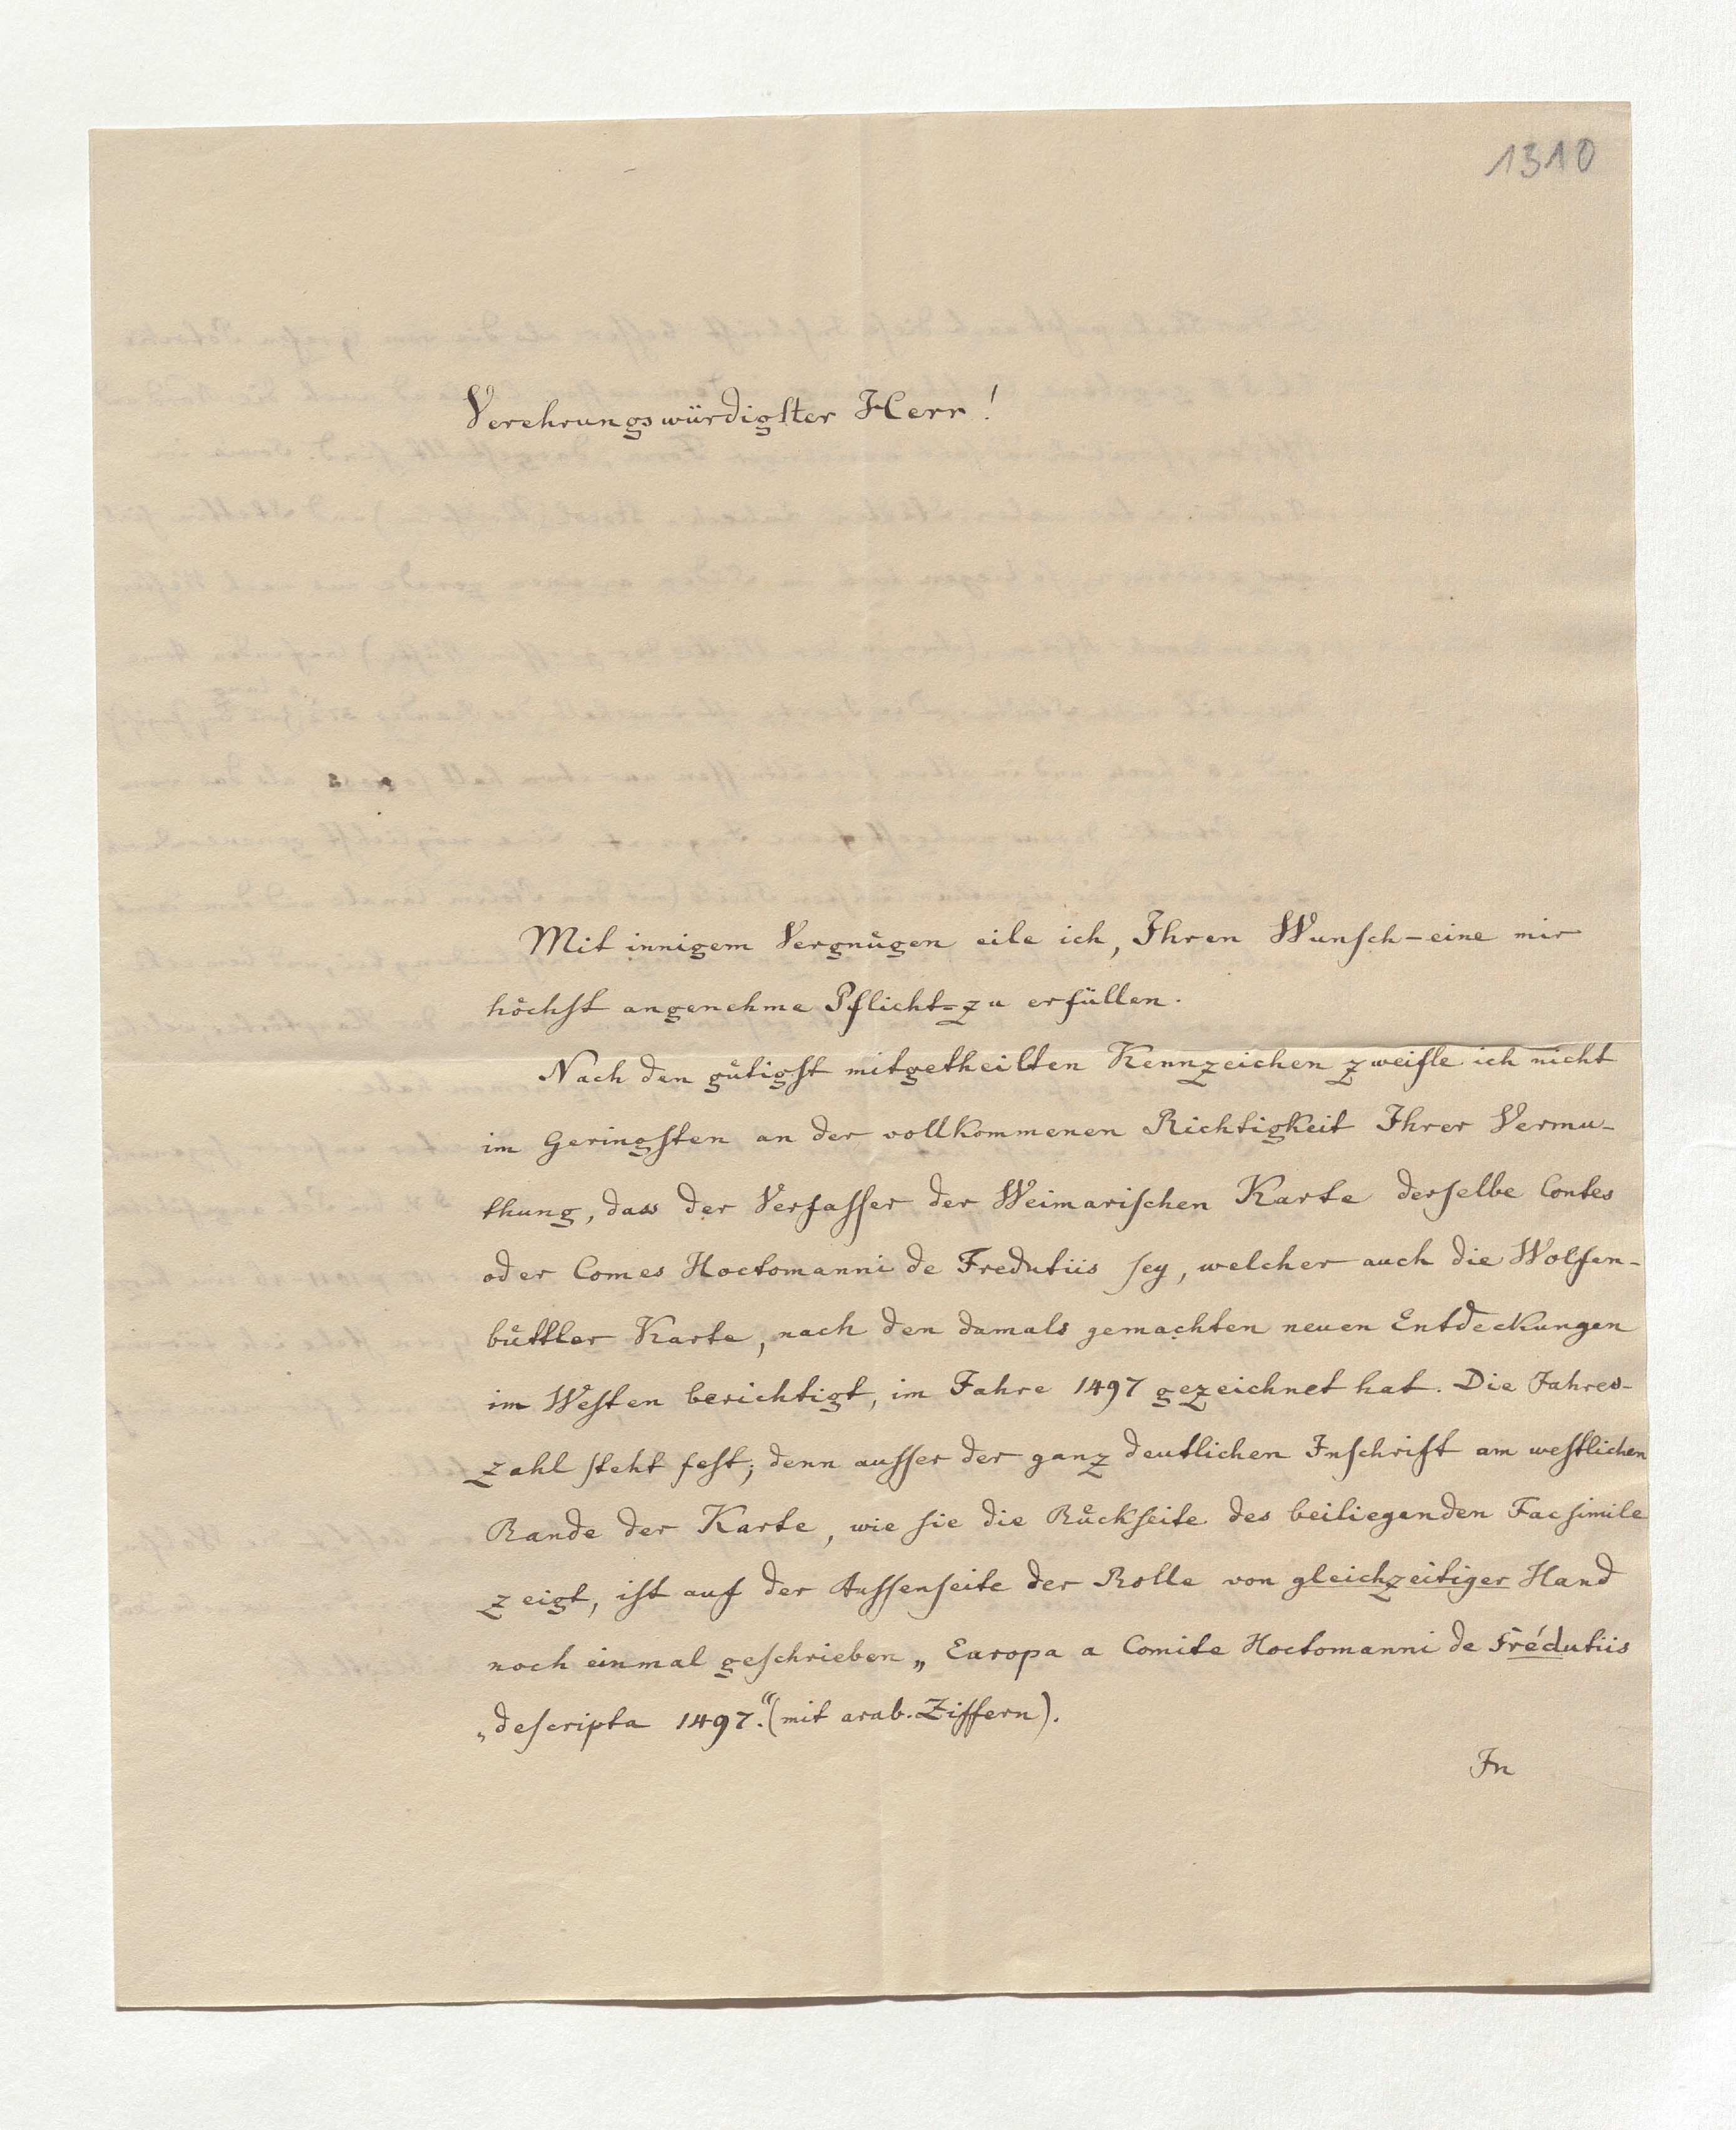 1310
Verehrungswürdigſter Herr!
Mit innigem Vergnügen eile ich, Ihren Wunſch - eine mir
höchſt angenehme Pflicht - zu erfüllen.
Nach den gütigſt mitgetheilten Kennzeichen zweifle ich nicht
im Geringſten an der vollkommenen Richtigkeit Ihrer Vermu-
thung, dass der Verfaſſer der Weimariſchen Karte derſelbe Contes
oder Comes Hoctomanni de Fredutiis ſey, welcher auch die Wolfen-
büttler Karte, nach den damals gemachten neuen Entdeckungen
im Weſten berichtigt, im Jahre 1497 gezeichnet hat. Die Jahres-
zahl ſteht feſt; denn auſſer der ganz deutlichen Inſchrift am weſtlichen
Rande der Karte, wie ſie die Rückſeite des beiliegenden Facſimile
zeigt, iſt auf der Auſſenſeite der Rolle von gleichzeitiger Hand
noch einmal geſchrieben „Europa a Comite Hoctomanni de Frédutiis
„deſcripta 1497.“ (mit arab. Ziffern).
In